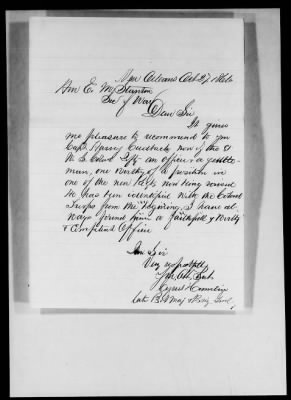 New Orleans Oct 27 1866
Hon E. M. Stanton
Sec of War
Dear Sir
It gives
me pleasure to recommend to you
Capt. Henry now of the
U. S. Cold an officer & gentle-
man, one worthy of a position in
one of the new Regts now being raised
He has been identified with the Colored
Troops from the beginning, I have al
ways found him a faithfull & worthy
& Competent Officer
I am Sir
Very respectfully
Your Obt. Servt.
Cyrus Hamlin
Late Maj & Brig Genl